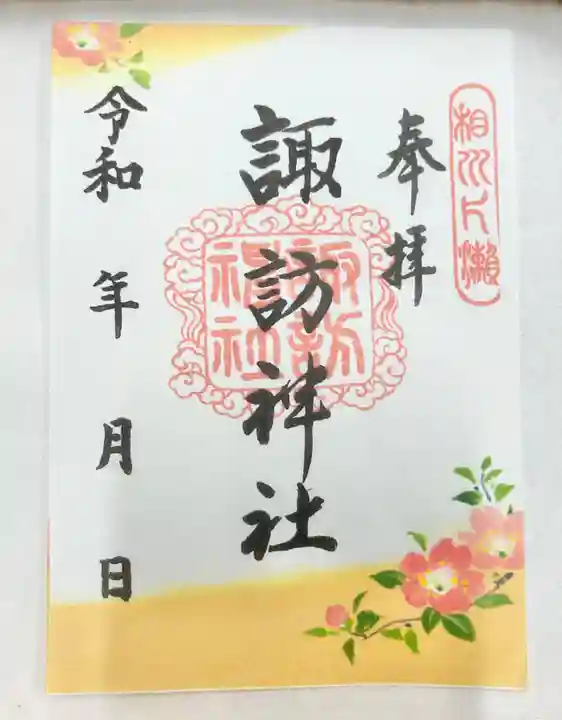 相川片瀬
奉拝
諏訪神社
諏訪神社
令和 年 月 日